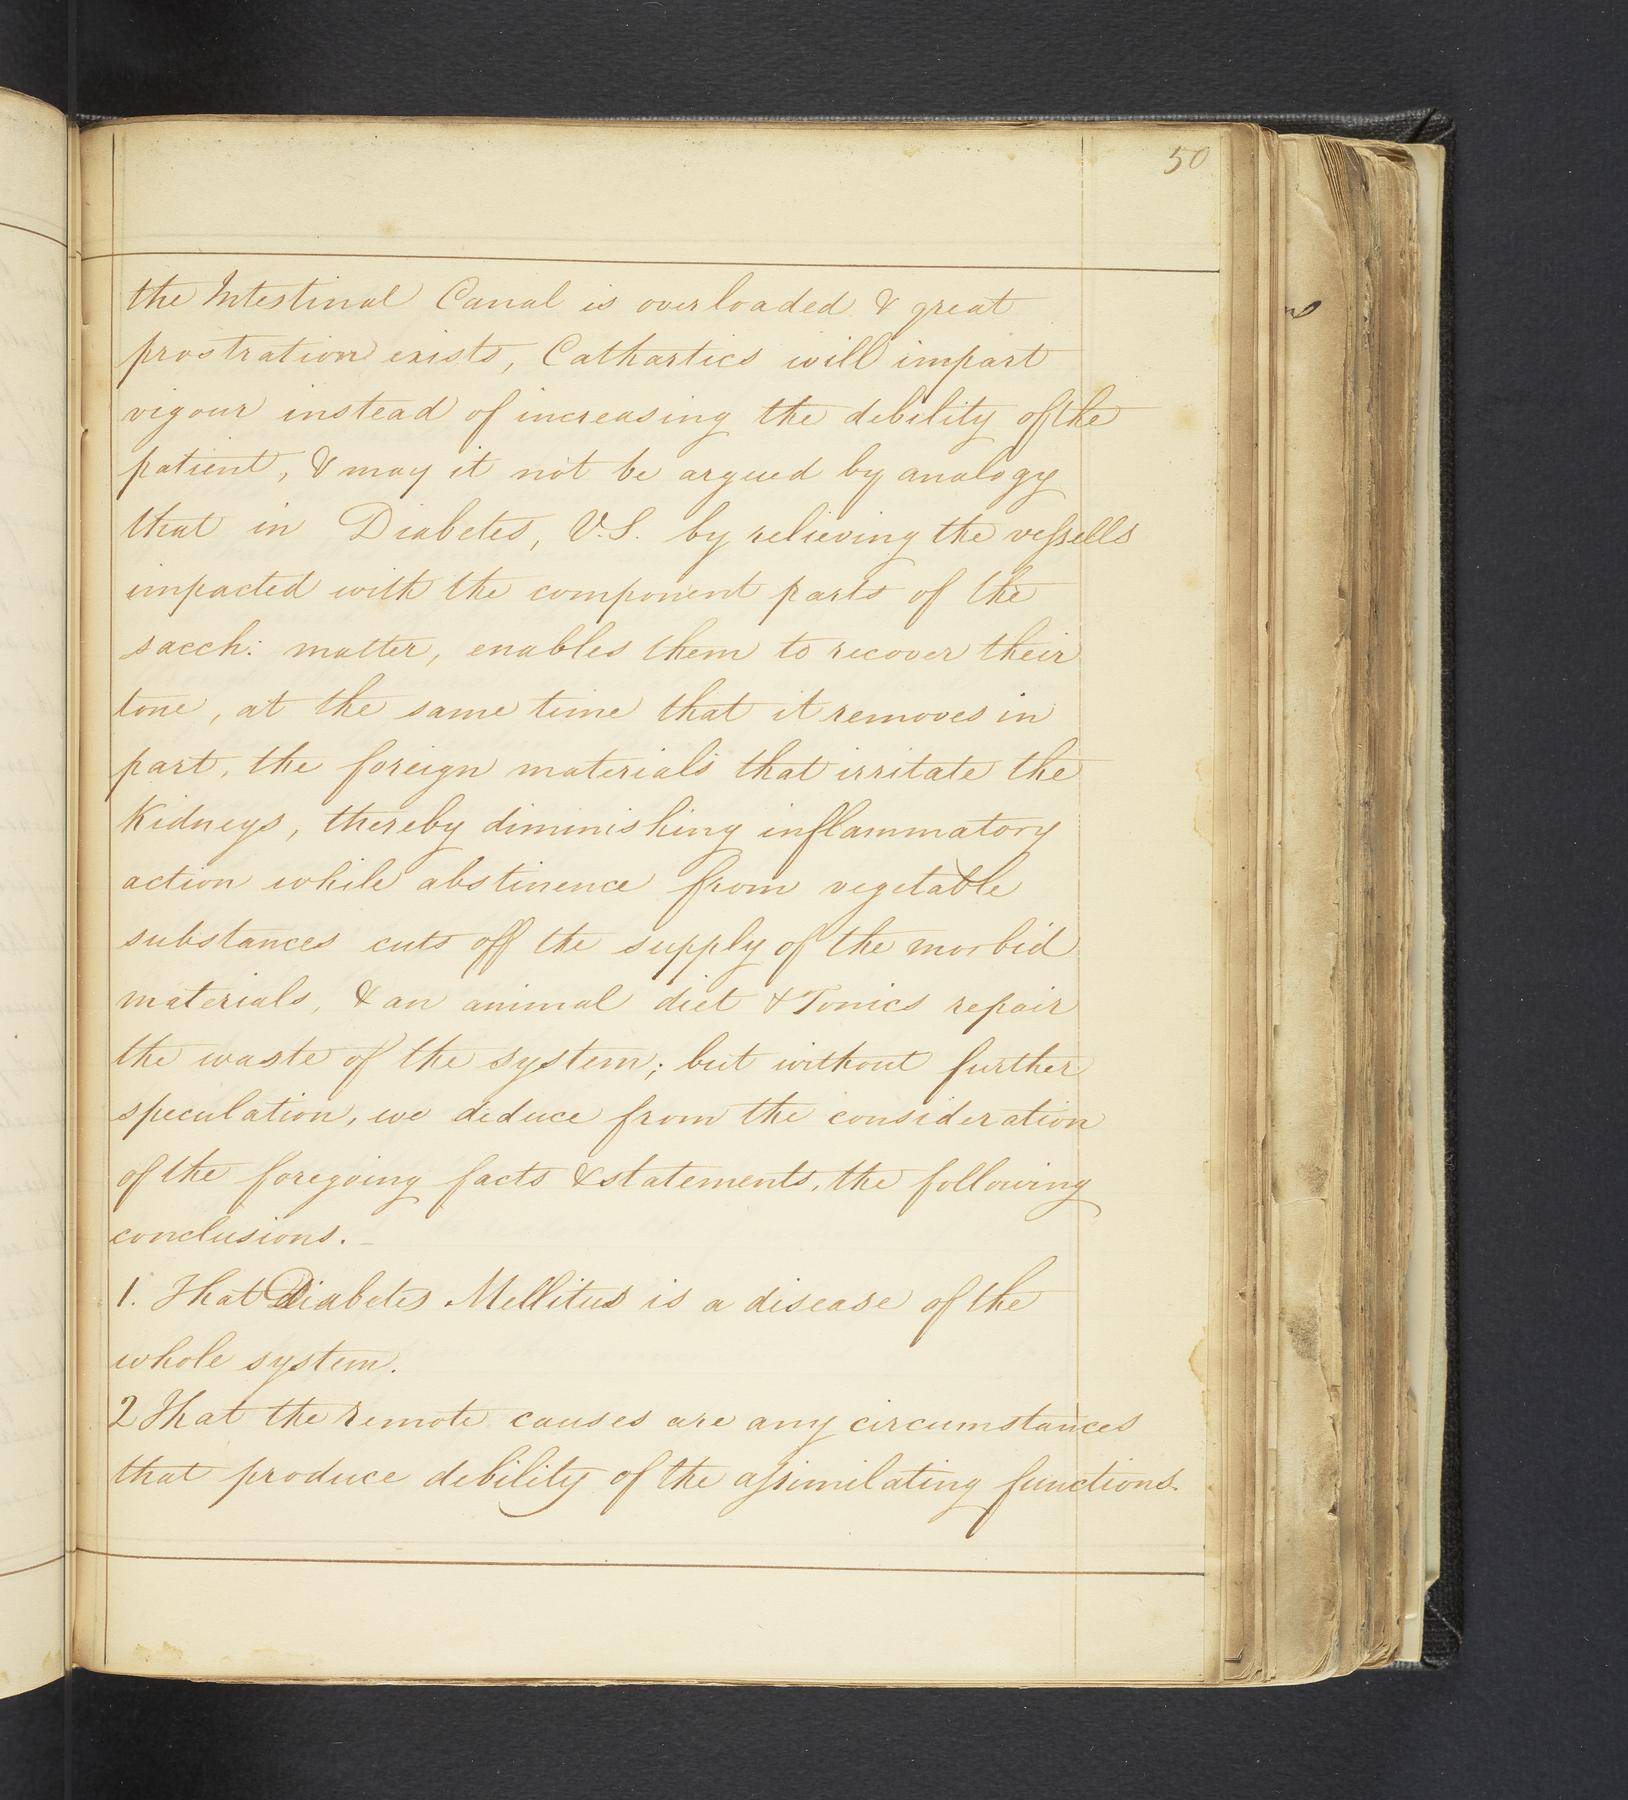 50
the Intestinal Canal is overloaded & great
prostration exists, Cathartics will impart
vigour instead of increasing the debility of the
patient, & may it not be argued by analogy
that in Diabetes, V.S. by relieving the veſsells
impacted with the component parts of the
sacch: matter, enables them to recover their
tone, at the same time that it removes in
part, the foreign materials that irritate the
Kidneys, thereby diminishing inflammatory
action while abstinence from vegetable
substances cuts off the supply of the morbid
materials, & an animal diet & Tonics repair
the waste of the system; but without further
speculation, we deduce from the consideration
of the foregoing facts & statements, the following
conclusions. _
1. That Diabetes Mellitus is a disease of the
whole system.
2 That the remote causes are any circumstances
that produce debility of the aſsimilating functions.